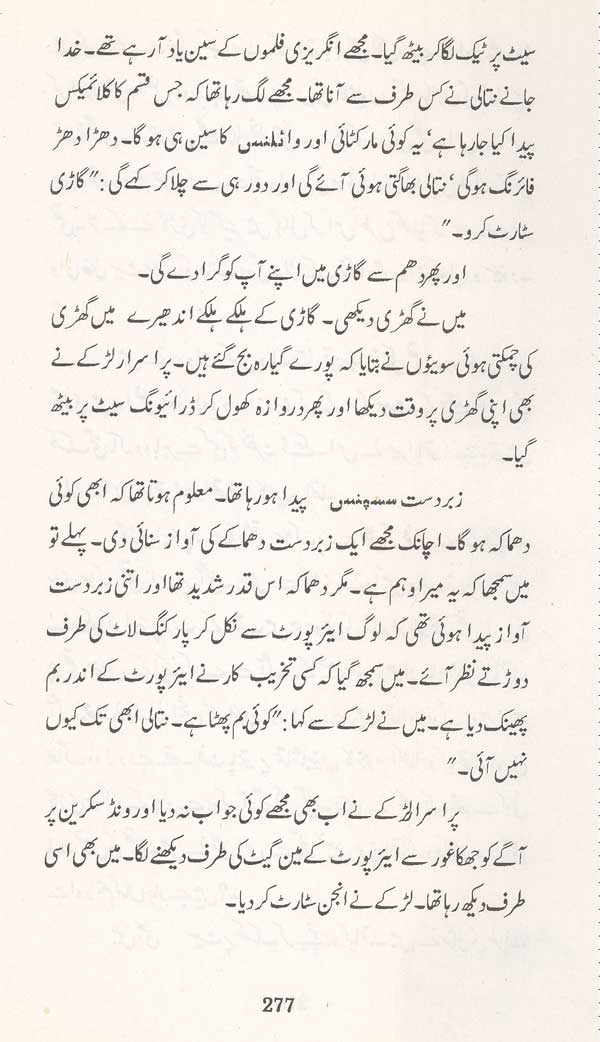 سیٹ پر ٹیک لگا کر بیٹھ گیا۔ مجھے انگریزی فلموں کے سین یاد آ رہے تھے۔ خدا
جانے نتالی نے کس طرف سے آنا تھا۔ مجھے لگ رہا تھا کہ جس قسم کا کلائمیکس
پیدا کیا جا رہا ہے‘ یہ کوئی مار کٹائی اور وائلنس کا سین ہی ہو گا۔ دھڑا دھڑ
فائرنگ ہو گی‘ نتالی بھاگتی ہوئی آئے گی اور دور ہی سے چلا کر کہے گی : "گاڑی
سٹارٹ کرو۔"
اور پھر دھم سے گاڑی میں اپنے آپ کو گرا دے گی۔
میں نے گھڑی دیکھی۔ گاڑی کے ہلکے ہلکے اندھیرے میں گھڑی
کی چمکتی ہوئی سوئیوں نے بتایا کہ پورے گیارہ بج گئے ہیں۔ پراسرار لڑکے نے
بھی اپنی گھڑی پر وقت دیکھا اور پھر دروازہ کھول کر ڈرائیونگ سیٹ پر بیٹھ
گیا۔
زبردست سسپنس پیدا ہو رہا تھا۔ معلوم ہوتا تھا کہ ابھی کوئی
دھماکہ ہو گا۔ اچانک مجھے ایک زبردست دھماکے کی آواز سنائی دی۔ پہلے تو
میں سمجھا کہ یہ میرا وہم ہے۔ مگر دھماکہ اس قدر شدید تھا اور اتنی زبردست
آواز پیدا ہوئی تھی کہ لوگ ایئرپورٹ سے نکل کر پارکنگ لاٹ کی طرف
دوڑتے نظر آئے۔ میں سمجھ گیا کہ کسی تخریب کار نے ایئرپورٹ کے اندر بم
پھینک دیا ہے۔ میں نے لڑکے سے کہا : "کوئی بم پھٹا ہے۔ نتالی ابھی تک کیوں
نہیں آئی۔"
پراسرار لڑکے نے اب بھی مجھے کوئی جواب نہ دیا اور ونڈ سکرین پر
آگے کو جھکا غور سے ایئرپورٹ کے مین گیٹ کی طرف دیکھنے لگا۔ میں بھی اسی
طرف دیکھ رہا تھا۔ لڑکے نے انجن سٹارٹ کر دیا۔
277